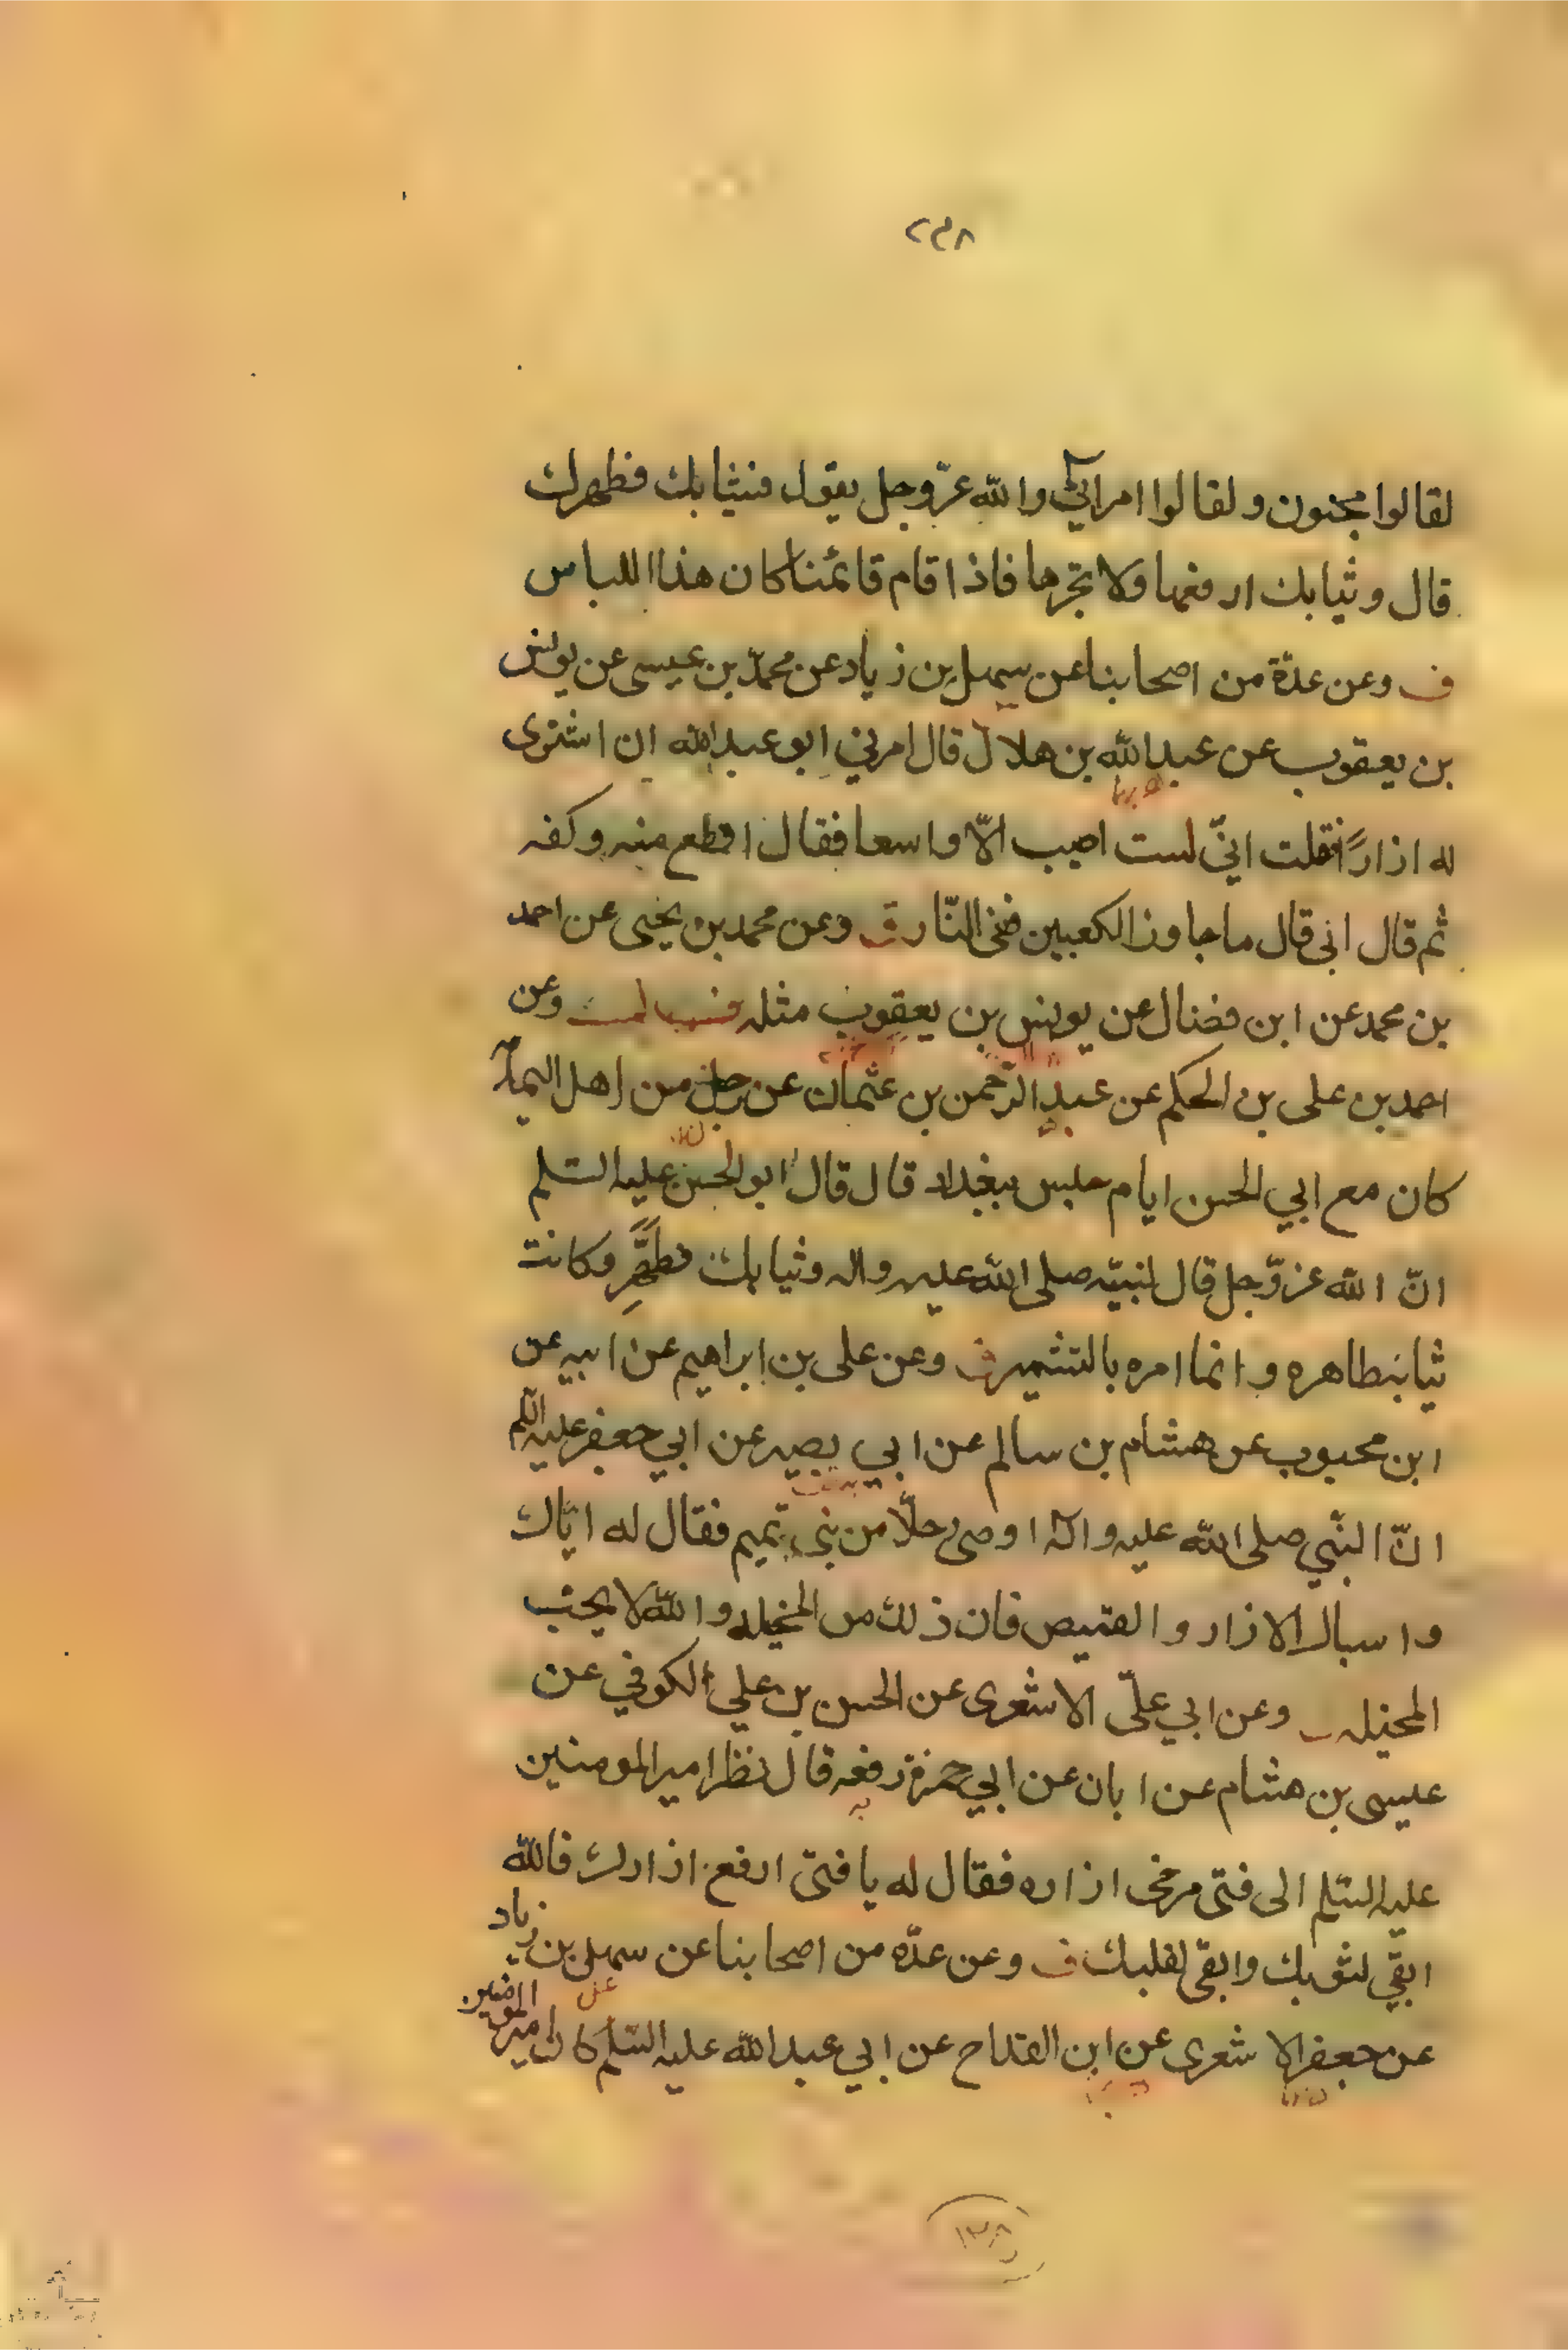 ٢٣٨
لقالوا مجنون و لقالوا امرائي والله عزّ وجل يقول فثيابك فطهرك
قال وثيابك ارفعها ولا تجرها فاذا قام قائمنا كان هذا اللباس
ف وعن عدّة من اصحابنا عن سهل بن زياد عن محمّد بن عيسى عن يونس
بن يعقوب عن عبدالله بن هلال قال امرني ابو عبدالله ان اشترى
له ازارًا فقلت انّي لست اصيب الّا واسعا فقال اقطع منه وكفه
ثم قال ابى قال ما جاوز الكعبين ففى النّار ق وعن محمد بن يحيى عن احمد
بن محمد عن ابن فضال عن يونس بن يعقوب مثله وعن
احمد بن على بن الحكم عن عبد الرّحمن بن عثمان عن رجل من اهل اليمامة
كان مع ابي الحسن ايام حبس ببغداد قال قال ابو الحسن عليه السّلم
انّ الله عز وّجل قال لنبيّه صلى الله عليه واله وثيابك فطهّر وكانت
ثيابه طاهره و انما امره بالتشمير ف وعن على بن ابراهيم عن ابيه عن
ابن محبوب عن هشام بن سالم عن ابي بصير عن ابي جعفر عليه السّلم
انّ النبّي صلى الله عليه واله اوصى رجلًا من بنى تميم فقال له ايّاك
و اسبال الازار و القميص فان ذلك من المخيله والله لا يحبّ
المخيله وعن ابي علّي الاشعرى عن الحسن بن علي الكوفي عن
عبيس بن هشام عن ابان عن ابي حمزة رفعه قال نظر امير المومنين
عليه السّلم الى فتى مرخى ازاره فقال له يا فتى ارفع ازارك فالله
ابقي لثوبك وانقى لقلبك ف وعن عدّه من اصحابنا عن سهل بن زياد
عن جعفر الاشعرى عن ابن القداح عن ابي عبدالله عليه السّلم كان امير المومنين
١٣٨